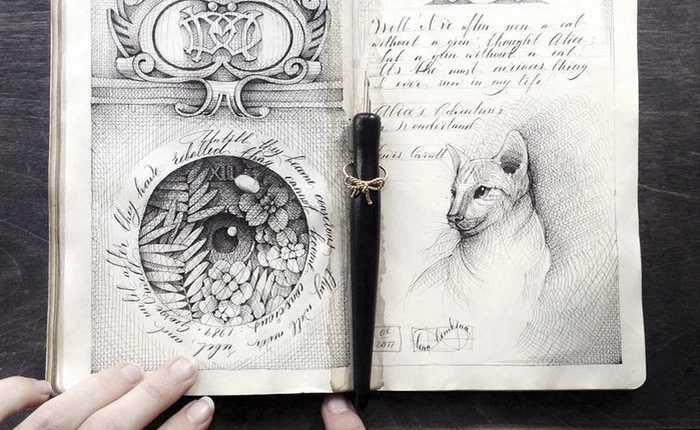 Untill they become conscious they will never rebel, and until after they have rebelled they cannot become conscious. 1984. George
XII
Well I've often seen a cat
without a grin, thought Alice,
but a grin without a cat
It's the most curious thing
I ever saw in my life
Alice's Adventures
in Wonderland
Lewis Carroll
05
2017